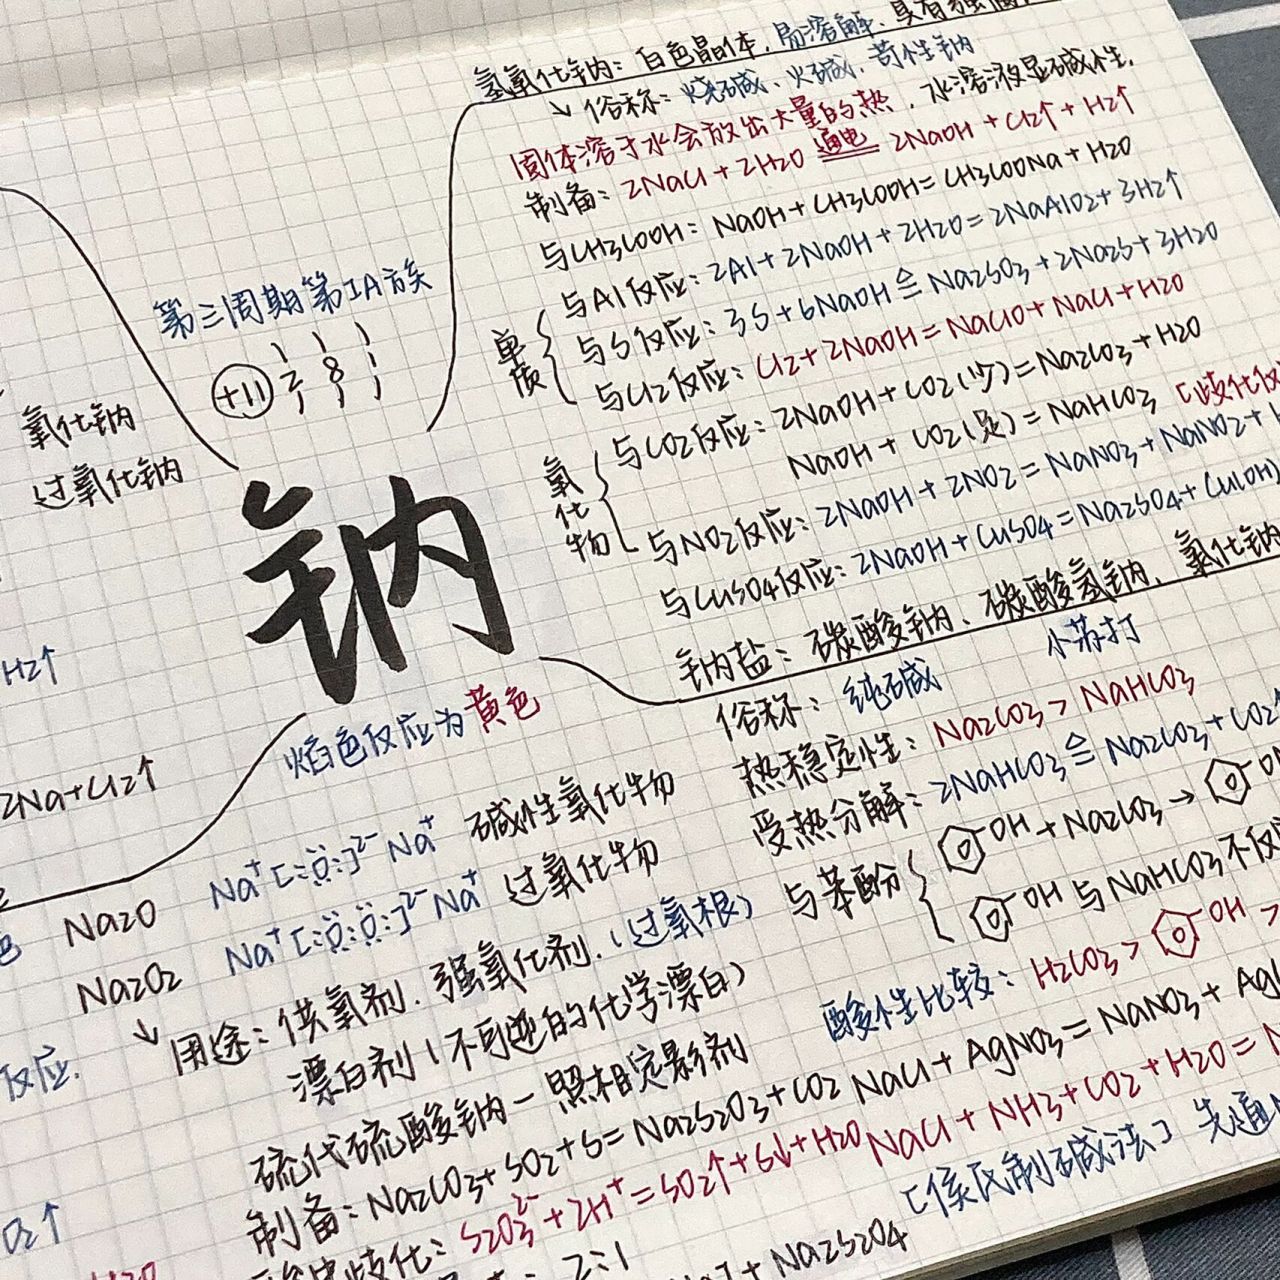 氢氧化钠：白色晶体，易溶解、具有强
↘ 俗称：烧碱、火碱、苛性钠
固体溶于水会放出大量的热，水溶液显碱性.
制备：2NaCl + 2H2O 通电 2NaOH + Cl2↑ + H2↑
与CH3COOH：NaOH + CH3COOH = CH3COONa + H2O
单质
与Al反应：2Al + 2NaOH + 2H2O = 2NaAlO2 + 3H2↑
与S反应：3S + 6NaOH ≜ Na2SO3 + 2Na2S + 3H2O
与Cl2反应：Cl2 + 2NaOH = NaClO + NaCl + H2O
氧化物
与CO2反应：2NaOH + CO2(少) = Na2CO3 + H2O
NaOH + CO2(足) = NaHCO3 [歧化反
与NO2反应：2NaOH + 2NO2 = NaNO3 + NaNO2 +
与CuSO4反应：2NaOH + CuSO4 = Na2SO4 + Cu(OH)
第三周期第IA族
+11 2 8 1
氧化钠
过氧化钠
钠
焰色反应为黄色
H2↑
2Na+Cl2↑
钠盐：碳酸钠、碳酸氢钠、氯化钠
俗称：纯碱 小苏打
热稳定性：Na2CO3 > NaHCO3
受热分解：2NaHCO3 ≜ Na2CO3 + CO2↑
与苯酚
OH + Na2CO3 → OH
OH 与 NaHCO3 不反
酸性比较：H2CO3 > OH >
NaCl + AgNO3 = NaNO3 + Ag
NaCl + NH3 + CO2 + H2O = N
[侯氏制碱法] 先通
Na2O Na⁺[:Ö:]²⁻Na⁺ 碱性氧化物
Na2O2 Na⁺[:Ö:Ö:]²⁻Na⁺ 过氧化物
↘ 用途：供氧剂. 强氧化剂.(过氧根)
漂白剂(不可逆的化学漂白)
硫代硫酸钠—照相定影剂
制备：Na2CO3 + SO2 + S = Na2S2O3 + CO2
歧化：S2O3²⁻ + 2H⁺ = SO2↑ + S↓ + H2O
2:1
+ Na2S2O4
反应.
O2↑
H2O